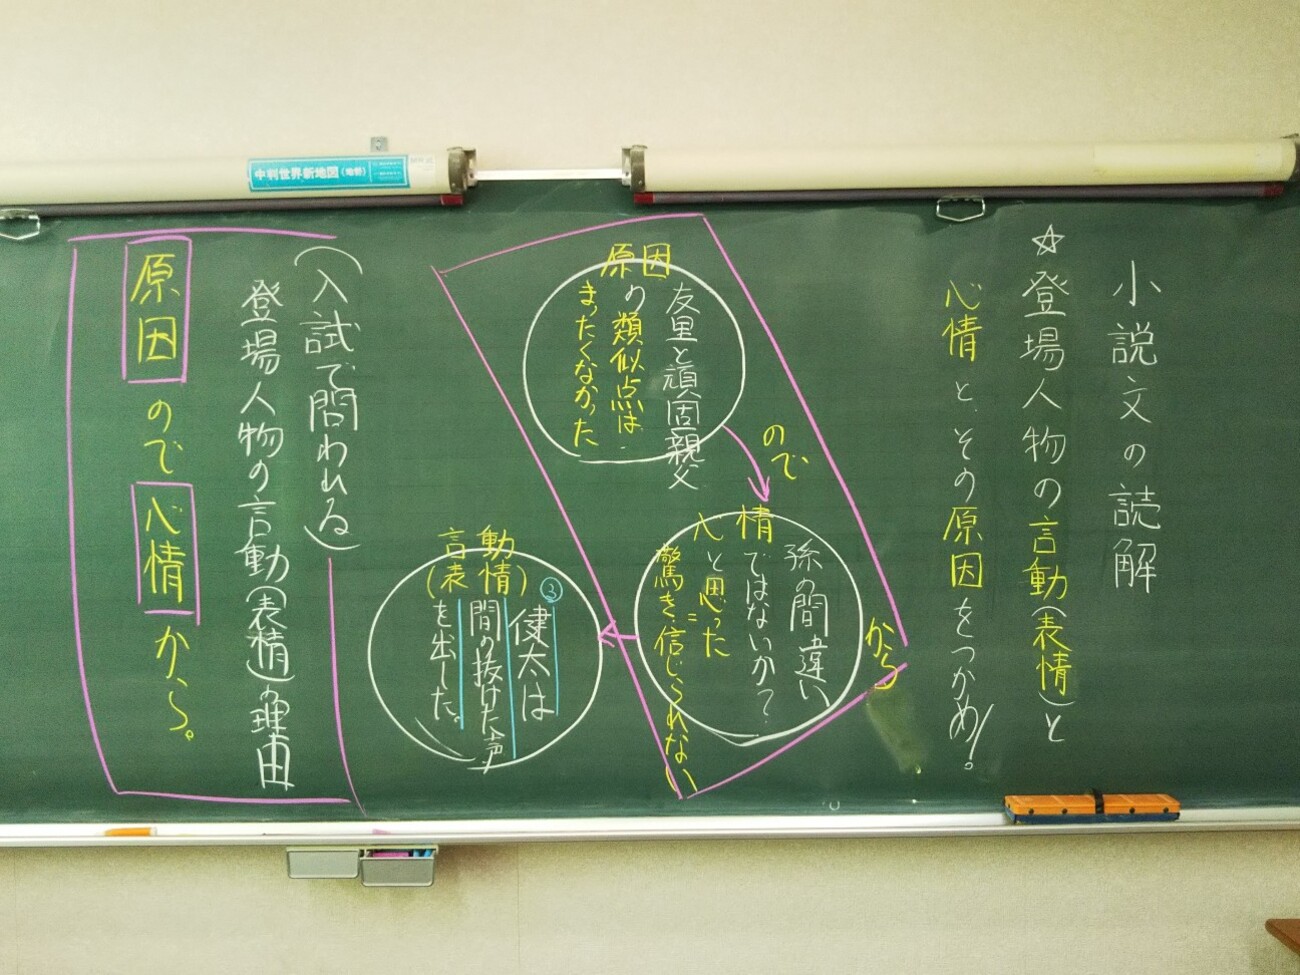 小説文の読解
☆登場人物の言動(表情)と
心情と、その原因をつかめ!
原因
友里と頑固親父
の類似点は
まったくなかった
ので
心情
孫の間違い
ではないか?
と思った
=
驚き、信じられない
から
言動
(表情)
③
健太は
間の抜けた声
を出した。
(入試で問われる)
登場人物の言動(表情)の理由
原因ので心情から。
中判世界新地図